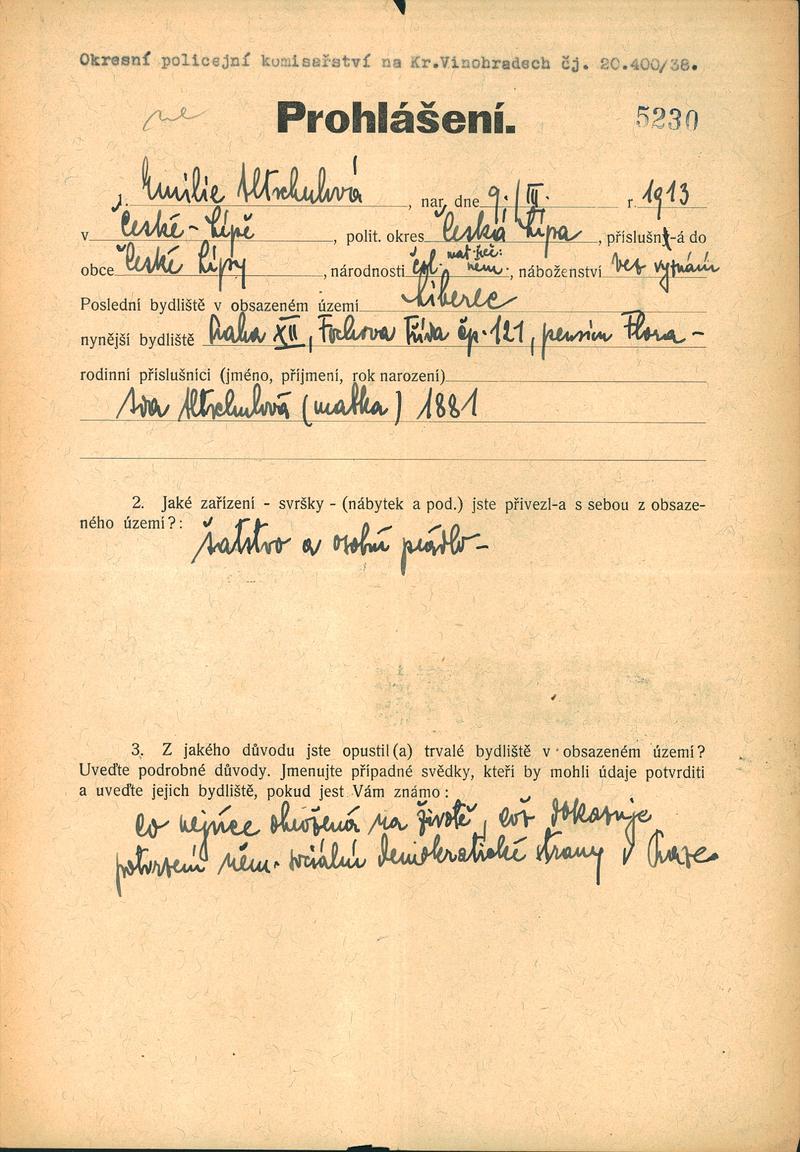 Okresní policejní komisařství na Kr.Vinohradech čj. 20.400/38.
Prohlášení. 5230
1. Emilie Altschulová, nar. dne 9./III. r. 1913
v České-Lípě, polit. okres Česká Lípa, příslušný-á do
mat. řeč:
obce České Lípy, národnosti čsl. něm., náboženství bez vyznání
Poslední bydliště v obsazeném území Liberec
nynější bydliště Praha XII, Fochova třída čp. 121, pension Flora –
rodinní příslušníci (jméno, příjmení, rok narození)
Altschulová (matka) 1881
2. Jaké zařízení - svršky - (nábytek a pod.) jste přivezl-a s sebou z obsaze-
ného území?:
Šatstvo a osobní prádlo –
3. Z jakého důvodu jste opustil(a) trvalé bydliště v obsazeném území?
Uveďte podrobné důvody. Jmenujte případné svědky, kteří by mohli údaje potvrditi
a uveďte jejich bydliště, pokud jest Vám známo:
co nejvíce ohrožená na životě, což dokazuje
potvrzení něm. sociální demokratické strany v Praze